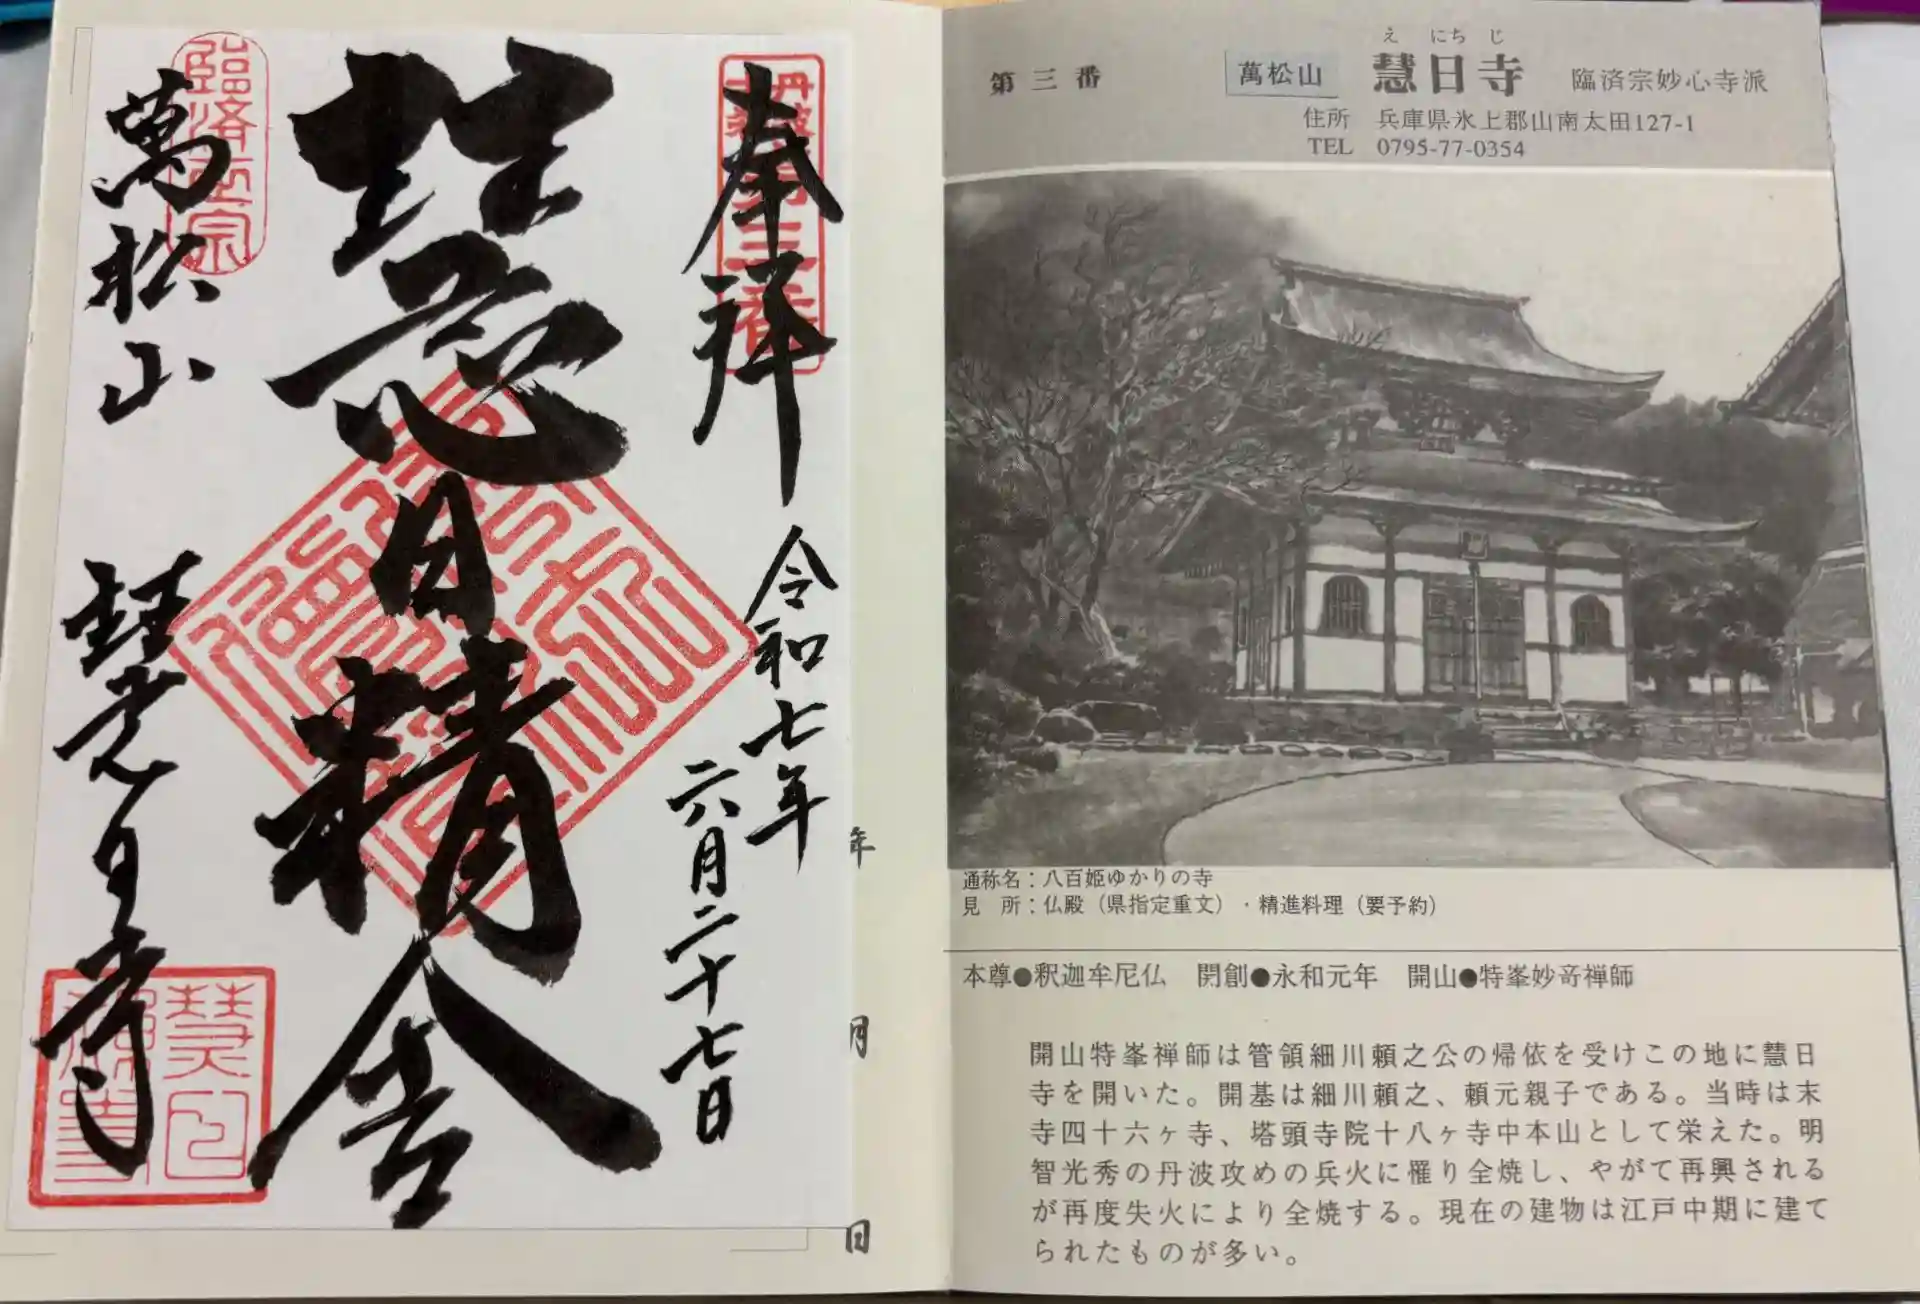 奉拝
令和七年
六月二十七日
慧日精舎
萬松山
慧日寺
臨済正宗
年
月
日
第三番
萬松山
え にち じ
慧日寺
臨済宗妙心寺派
住所 兵庫県氷上郡山南太田127-1
TEL 0795-77-0354
通称名：八百姫ゆかりの寺
見 所：仏殿（県指定重文）・精進料理（要予約）
本尊●釈迦牟尼仏 開創●永和元年 開山●特峯妙奇禅師
開山特峯禅師は管領細川頼之公の帰依を受けこの地に慧日
寺を開いた。開基は細川頼之、頼元親子である。当時は末
寺四十六ヶ寺、塔頭寺院十八ヶ寺中本山として栄えた。明
智光秀の丹波攻めの兵火に罹り全焼し、やがて再興される
が再度失火により全焼する。現在の建物は江戸中期に建て
られたものが多い。